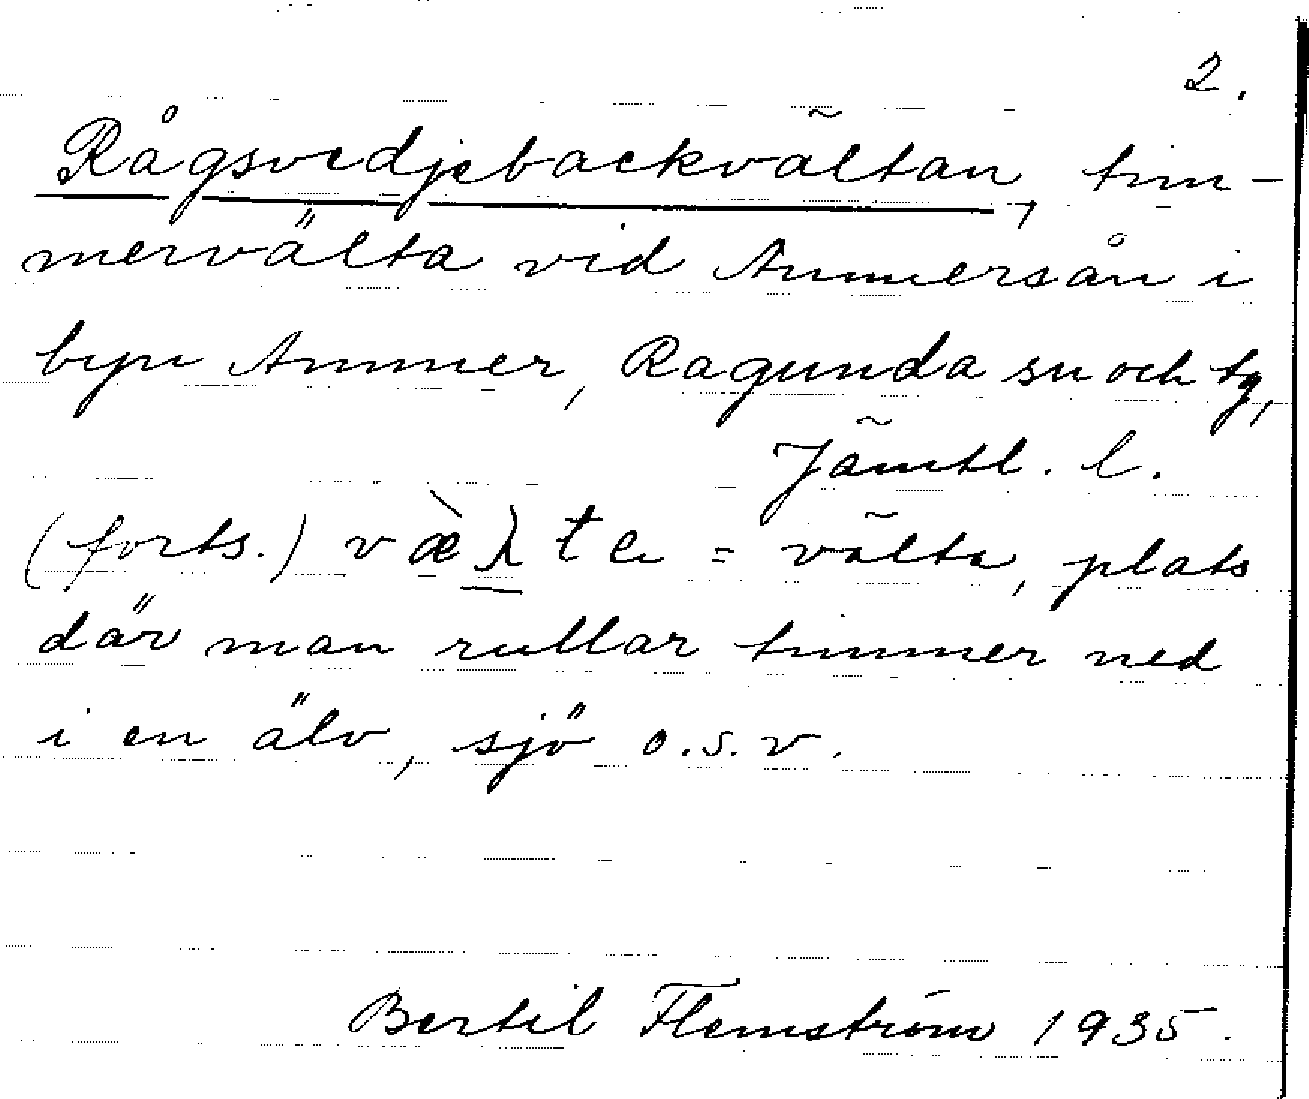 2.
Rågsvedjebackvältan, tim-
mervälta vid Ammersån i
byn Ammer, Ragunda sn och tg,
Jämtl. l.
(forts.) væ̀λta = välta, plats
där man rullar timmer ned
i en älv, sjö o.s.v.
Bertil Flemström 1935.